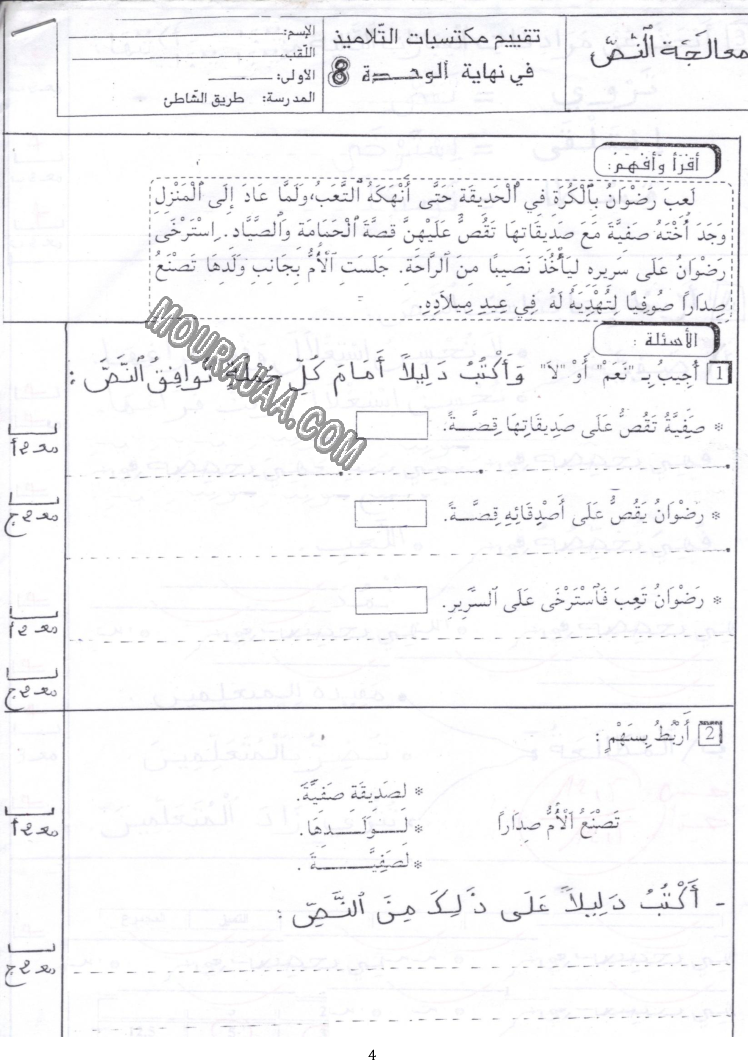 معالجة النص
تقييم مكتسبات التلاميذ
في نهاية الوحدة 8
الإسم:
اللقب:
الأولى:
المدرسة: طريق الشاطئ
أقرأ وأفهم:
لَعِبَ رَضْوَانُ بِالْكُرَةِ فِي الْحَدِيقَةِ حَتَّى أَنْهَكَهُ التَّعَبُ، وَلَمَّا عَادَ إِلَى الْمَنْزِلِ
وَجَدَ أُخْتَهُ صَفِيَّةَ مَعَ صَدِيقَاتِهَا تَقُصُّ عَلَيْهِنَّ قِصَّةَ الْحَمَامَةِ وَالصَّيَّادِ. اِسْتَرْخَى
رَضْوَانُ عَلَى سَرِيرِهِ لِيَأْخُذَ نَصِيبًا مِنَ الرَّاحَةِ. جَلَسَتِ الْأُمُّ بِجَانِبِ وَلَدِهَا تَصْنَعُ
صِدَارًا صُوفِيًّا لِتُهْدِيَهُ لَهُ فِي عِيدِ مِيلَادِهِ.
الأسئلة :
1 أُجِيبُ بِـ "نَعَمْ" أَوْ "لاَ" وَأَكْتُبُ دَلِيلاً أَمَامَ كُلِّ جُمْلَةٍ تُوَافِقُ النَّصَّ :
* صَفِيَّةُ تَقُصُّ عَلَى صَدِيقَاتِهَا قِصَّةً.
مع 1 أ
* رَضْوَانُ يَقُصُّ عَلَى أَصْدِقَائِهِ قِصَّةً.
مع 3 ج
* رَضْوَانُ تَعِبَ فَاسْتَرْخَى عَلَى السَّرِيرِ.
مع 1 أ
مع 3 ج
2 أَرْبُطُ بِسَهْمٍ :
* لِصَدِيقَةِ صَفِيَّةَ.
تَصْنَعُ الْأُمُّ صِدَارًا * لِوَلَدِهَا.
* لِصَفِيَّةَ .
مع 1 أ
- أَكْتُبُ دَلِيلاً عَلَى ذَلِكَ مِنَ النَّصِّ :
مع 3 ج
MOURAJAA.COM
4